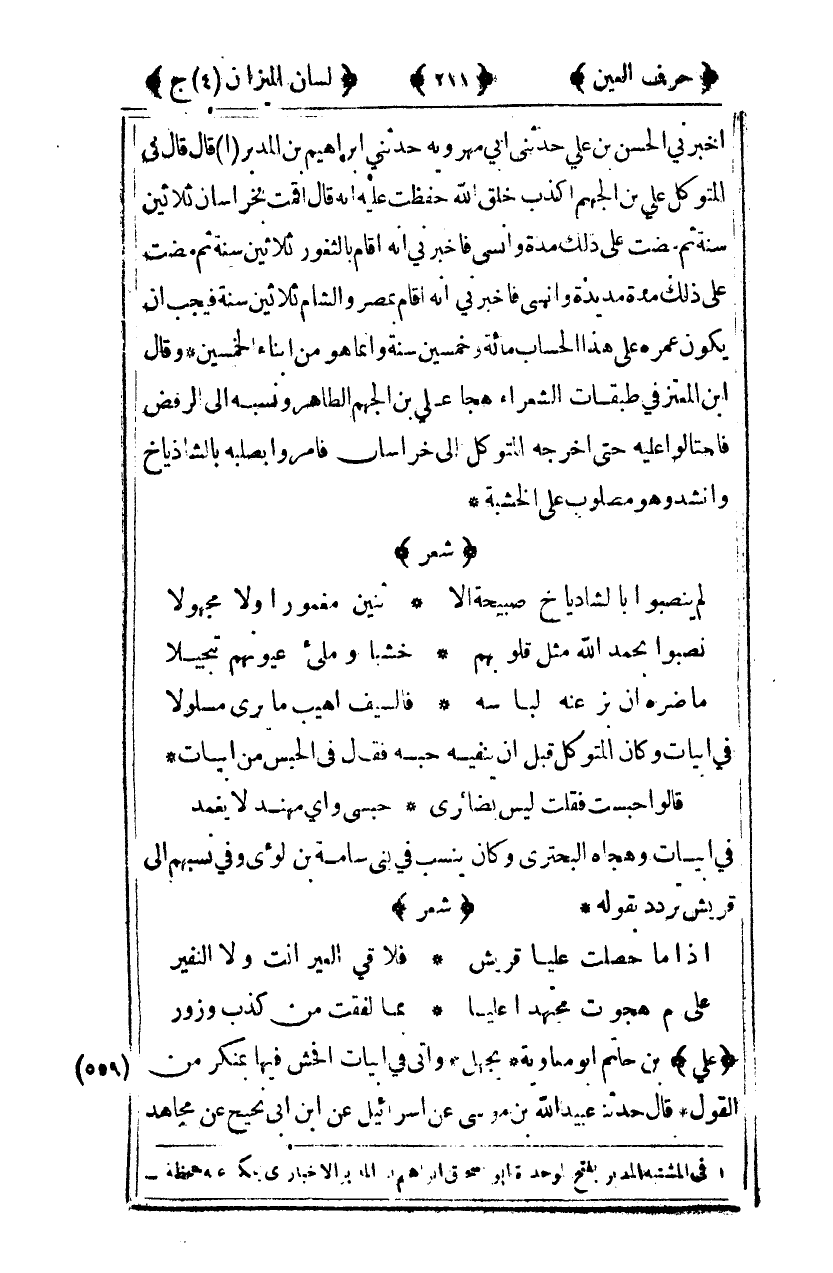 ﴿ حرف العين ﴾ ﴿ ٢١١ ﴾ ﴿ لسان الميزان (٤) ج ﴾
اخبرني الحسن بن علي حدثني ابي مهرويه حدثني ابراهيم بن المدبر (١) قال قال لي
المتوكل علي بن الجهم اكذب خلق الله حفظت عليه انه قال اقمت بخراسان ثلاثين
سنة ثم مضت على ذلك مدة وانسى فاخبرني انه اقام بالثغور ثلاثين سنة ثم مضت
على ذلك مدة مديدة وانسى فاخبرني انه اقام بمصر والشام ثلاثين سنة فيجب ان
يكون عمره على هذا الحساب مائة وخمسين سنة وانما هو من ابناء الخمسين * وقال
ابن المعتز في طبقات الشعراء هجا علي بن الجهم الطاهر ونسبه الى الرفض
فاحتالوا عليه حتى اخرجه المتوكل الى خراسان فامروا بصلبه بالشاذياخ
وانشد وهو مصلوب على الخشبة *
﴿ شعر ﴾
لم ينصبوا بالشادياخ صبيحة الا * ثنين مغمورا ولا مجهولا
نصبوا بحمد الله مثل قلوبهم * خشبا وملئ عيونهم تبجيلا
ما ضره ان بز عنه لباسه * فالسيف اهيب ما يرى مسلولا
في ابيات وكان المتوكل قبل ان ينفيه حبسه فقال في الحبس من ابيات *
قالوا حبست فقلت ليس بضائرى * حبسى واي مهند لا يغمد
في ابيات وهجاه البحترى وكان ينسب في بنى سامة بن لوئى وفي نسبهم الى
قريش تردد بقوله * ﴿ شعر ﴾
اذا ما حصلت عليا قريش * فلا في العير انت ولا النفير
على م هجوت مجتهدا عليا * بما لفقت من كذب وزور
﴿ علي ﴾ بن حاتم ابو معاوية * يجهل * واتى في ابيات الحش فيها بمنكر من (٥٥٩)
القول * قال حدثنا عبيد الله بن موسى عن اسرائيل عن ابن ابى نجيح عن مجاهد
١ فى المشتبه المدبر بفتح الموحدة ابو اسحق ابراهيم بن المدبر الاخبارى